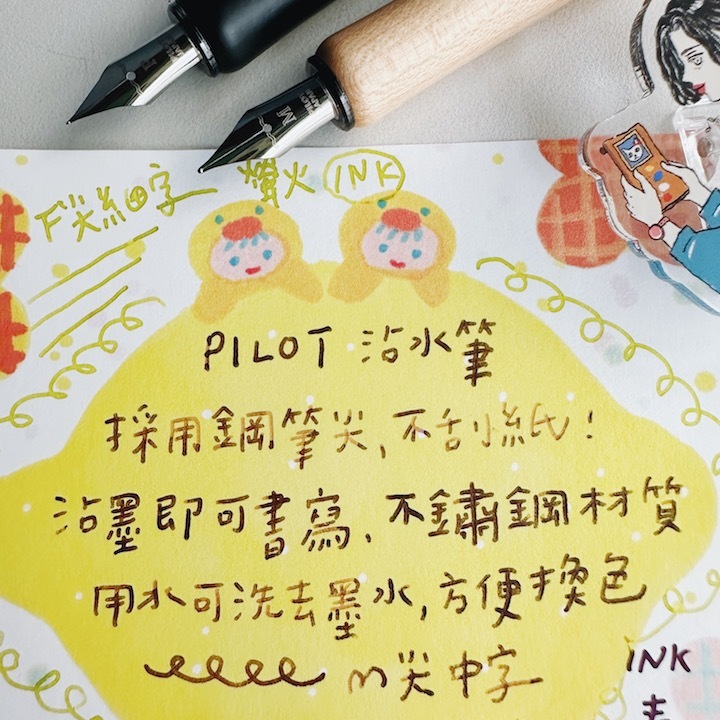 M
F尖細字 螢火 INK
PILOT 沾水筆
採用鋼筆尖,不刮紙!
沾墨即可書寫、不鏽鋼材質
用水可洗去墨水,方便換色
m尖中字
INK